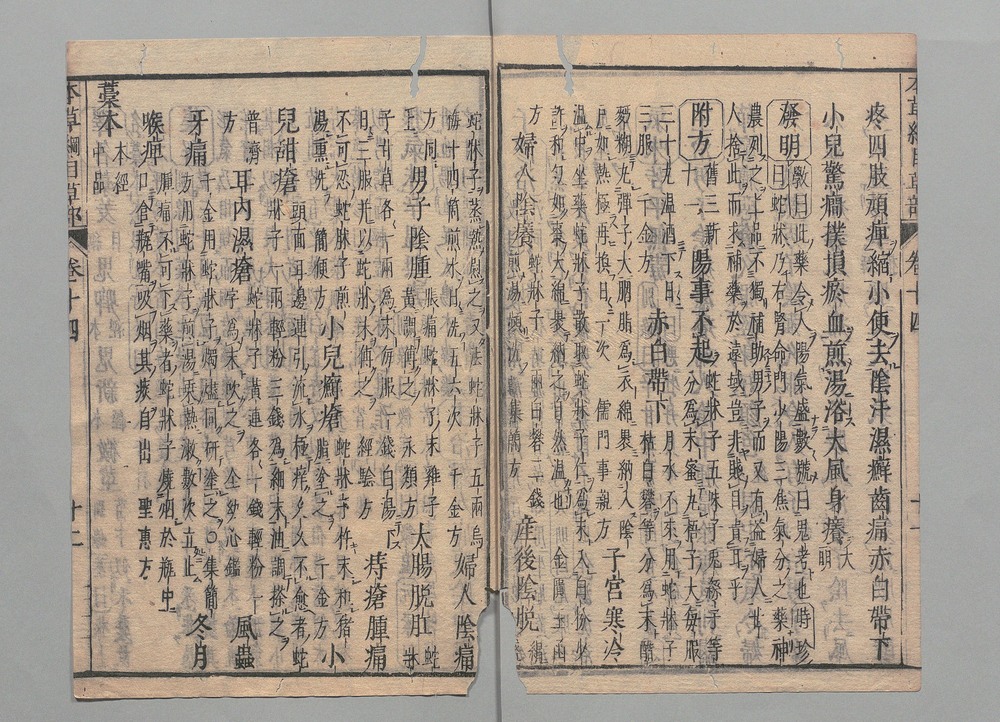 本草綱目草部 卷十四 十二
疼四肢頑痺縮小便去陰汗濕癬齒痛赤白帶下
小兒驚癇撲損瘀血煎湯浴大風身癢大明
發明 斅曰此藥令人陽氣盛數號曰鬼考也時珍
曰蛇牀乃右腎命門少陽三焦氣分之藥神
農列之上品不獨補助男子而又有益婦人世
人捨此而求補藥於遠域豈非賤目貴耳乎
附方 舊三新十一 陽事不起 蛇牀子五味子兔絲子等
分為末蜜丸梧子大每服
三十丸溫酒下日
三服 千金方 赤白帶下 月水不來用蛇牀子
枯白礬等分為末醋
麪糊丸彈子大胭脂為衣綿裹納入陰
戶如熱極再換日一次 儒門事親方 子宮寒冷
溫中坐藥蛇牀子散取蛇牀子仁為末入白粉少
許和勻如棗大綿裹納之自然溫也 金匱玉函
方 婦人陰癢 蛇牀子一兩白礬二錢
煎湯頻洗集簡方 產後陰脫 絹
蛇牀子蒸熱熨之又法蛇牀子五兩烏
梅十四箇煎水日洗五六次 千金方 婦人陰痛
方同
上 男子陰腫 脹痛蛇牀子末雞子
黃調傅之 永類方 大腸脫肛 蛇
牀
子甘草各一兩為末每服一錢白湯下
日三服并以蛇牀末傅之 經驗方 痔瘡腫痛
不可忍蛇牀子煎
湯熏洗 簡便方 小兒癬瘡 蛇牀子杵末和猪
脂塗之 千金方 小
兒甜瘡 頭面耳邊連引流水極痒久久不愈者蛇
牀子一兩輕粉三錢為細末油調搽之
普濟
方 耳內濕瘡 蛇牀子黃連各一錢輕粉一
字為末吹之 全幼心鑑 風蟲
牙痛 千金用蛇牀子燭燼同研塗之○集簡
方用蛇牀子煎湯乘熱漱數次立止 冬月
喉痺 腫痛不可下藥者蛇牀子燒烟於瓶中
口含瓶嘴吸烟其痰自出 聖惠方
藁本 本經
中品
本草綱目草部 卷十四 十二